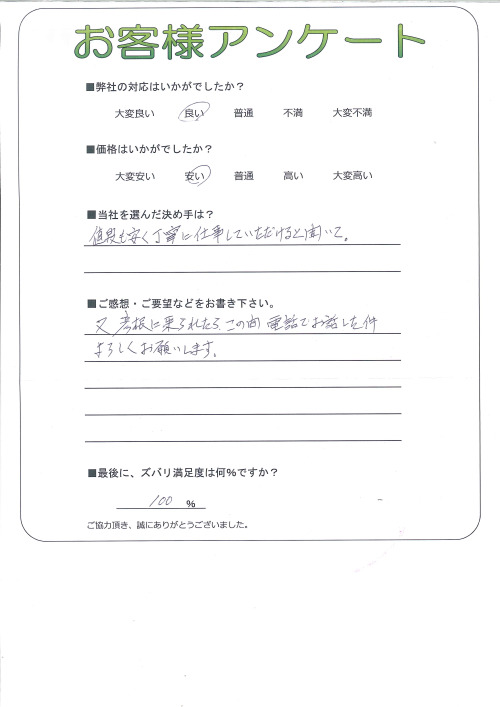 お客様アンケート
■弊社の対応はいかがでしたか？
大変良い 良い 普通 不満 大変不満
■価格はいかがでしたか？
大変安い 安い 普通 高い 大変高い
■当社を選んだ決め手は？
値段も安く丁寧に仕事していただけると聞いて。
■ご感想・ご要望などをお書き下さい。
又 彦根に来られたら、この間 電話でお話した件
よろしくお願いします。
■最後に、ズバリ満足度は何％ですか？
100 %
ご協力頂き、誠にありがとうございました。